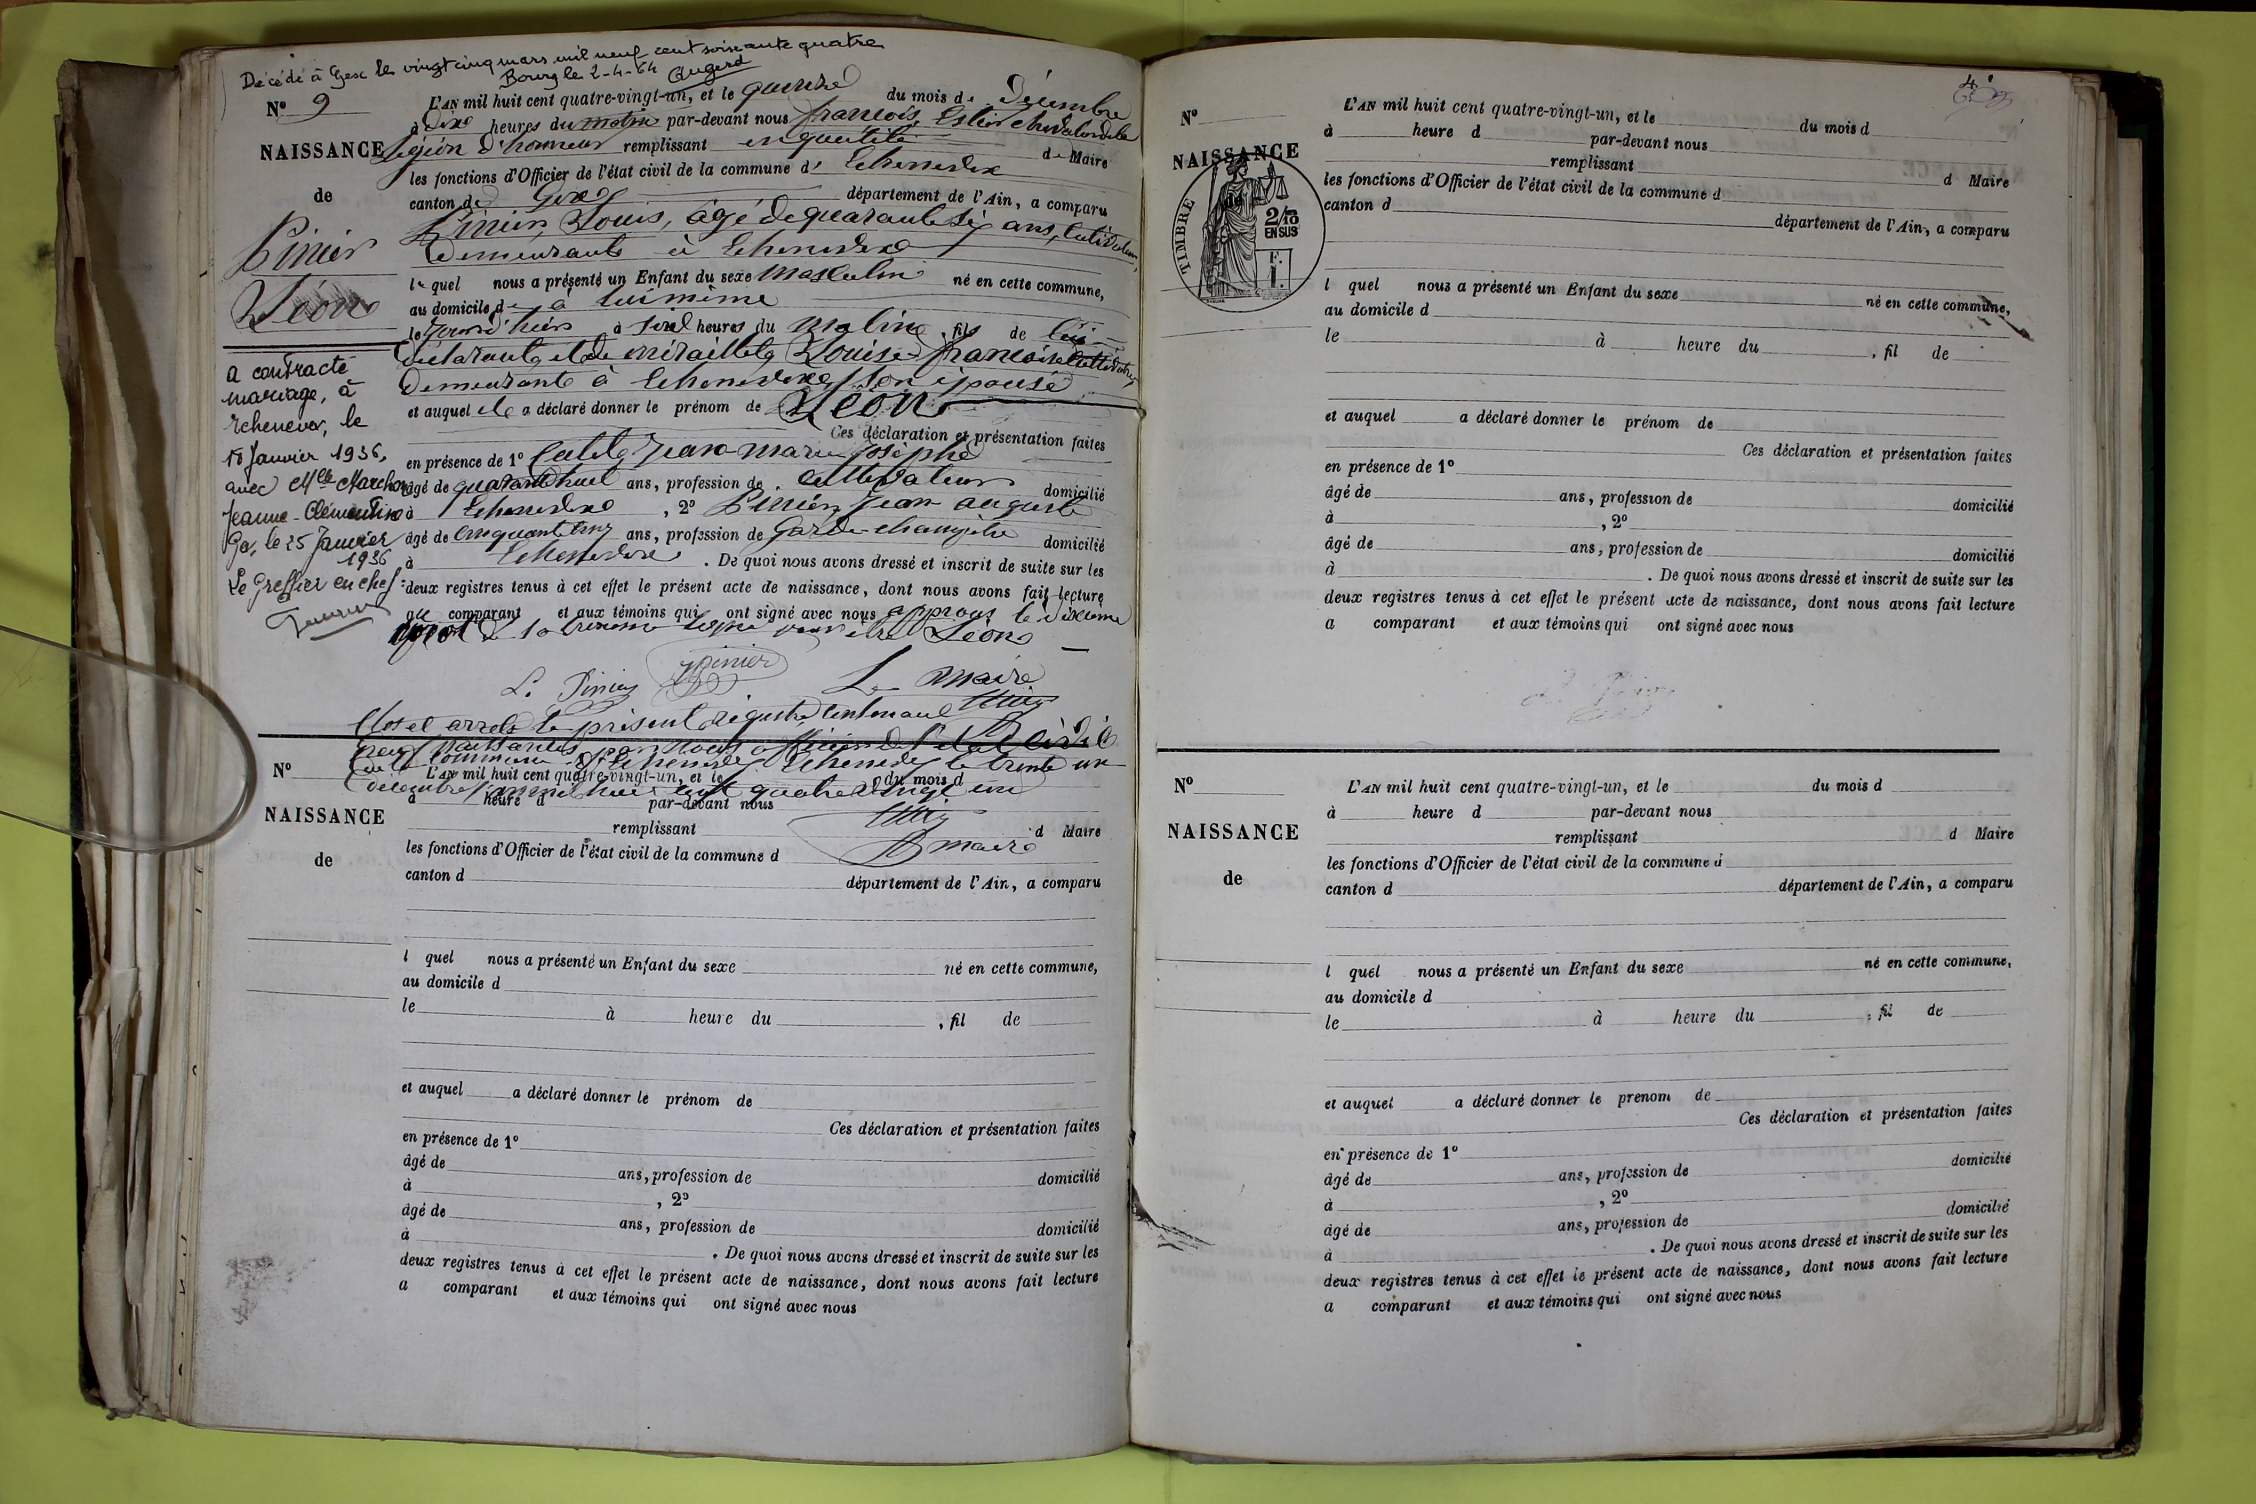 Décédé à Gex le vingt cinq mars mil neuf cent soixante quatre
Bourg le 2-4-64
Nº 9
NAISSANCE
de
Pinier
Léon
a contracté
mariage, à
Echenevex, le
18 Janvier 1936,
avec Mlle Marchon
Jeanne-Clémentine
Gex, le 25 Janvier
1936
Le Greffier en chef:
L'AN mil huit cent quatre-vingt-un, et le quinze du mois de Décembre
à dix heures du matin par-devant nous françois, chevalier de la
Légion d'honneur remplissant en qualité de Maire
les fonctions d'Officier de l'état civil de la commune d' Echenevex
canton de Gex département de l'Ain, a comparu
Pinier Louis, âgé de quarante six ans, cultivateur,
demeurant à Echenevex
lequel nous a présenté un Enfant du sexe masculin né en cette commune,
au domicile de à lui même
le jour d'hier à sept heures du matin, fils de lui
déclarant, et de Louise françoise cultivatrice
demeurante à Echenevex son épouse
et auquel il a déclaré donner le prénom de Léon
Ces déclaration et présentation faites
en présence de 1º Jean marie josèphe
âgé de quarante huit ans, profession de cultivateur domicilié
à Echenevex, 2º Pinier Jean auguste
âgé de cinquante cinq ans, profession de Garde-champêtre domicilié
à Echenevex. De quoi nous avons dressé et inscrit de suite sur les
deux registres tenus à cet effet le présent acte de naissance, dont nous avons fait lecture
au comparant et aux témoins qui ont signé avec nous approuvé le dixième
mot de la treizième ligne pour être Léon
L. Pinier Pinier Le maire
Clos et arrêté le présent registre contenant
neuf naissances par nous officier de l'état civil
de la commune d'Echenevex Echenevex le trente un
décembre mil huit cent quatre vingt un
maire
Nº
NAISSANCE
de
L'AN mil huit cent quatre-vingt-un, et le du mois d
à heure d par-devant nous
remplissant d Maire
les fonctions d'Officier de l'état civil de la commune d
canton d département de l'Ain, a comparu
l quel nous a présenté un Enfant du sexe né en cette commune,
au domicile d
le à heure du , fil de
et auquel a déclaré donner le prénom de
Ces déclaration et présentation faites
en présence de 1º
âgé de ans, profession de domicilié
à , 2º
âgé de ans, profession de domicilié
à . De quoi nous avons dressé et inscrit de suite sur les
deux registres tenus à cet effet le présent acte de naissance, dont nous avons fait lecture
a comparant et aux témoins qui ont signé avec nous
4
Nº
NAISSANCE
de
TIMBRE
2/10
EN SUS
F.
1.
L'AN mil huit cent quatre-vingt-un, et le du mois d
à heure d par-devant nous
remplissant d Maire
les fonctions d'Officier de l'état civil de la commune d
canton d département de l'Ain, a comparu
l quel nous a présenté un Enfant du sexe né en cette commune,
au domicile d
le à heure du , fil de
et auquel a déclaré donner le prénom de
Ces déclaration et présentation faites
en présence de 1º
âgé de ans, profession de domicilié
à , 2º
âgé de ans, profession de domicilié
à . De quoi nous avons dressé et inscrit de suite sur les
deux registres tenus à cet effet le présent acte de naissance, dont nous avons fait lecture
a comparant et aux témoins qui ont signé avec nous
Nº
NAISSANCE
de
L'AN mil huit cent quatre-vingt-un, et le du mois d
à heure d par-devant nous
remplissant d Maire
les fonctions d'Officier de l'état civil de la commune d
canton d département de l'Ain, a comparu
l quel nous a présenté un Enfant du sexe né en cette commune,
au domicile d
le à heure du , fil de
et auquel a déclaré donner le prenom de
Ces déclaration et présentation faites
en présence de 1º
âgé de ans, profession de domicilié
à , 2º
âgé de ans, profession de domicilié
à . De quoi nous avons dressé et inscrit de suite sur les
deux registres tenus à cet effet le présent acte de naissance, dont nous avons fait lecture
a comparant et aux témoins qui ont signé avec nous